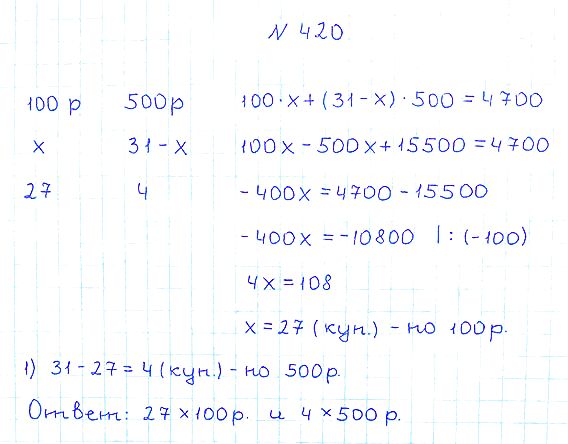 N 420
100 р 500р 100·x+(31-x)·500=4700
x 31-x 100x-500x+15500=4700
27 4 -400x=4700-15500
-400x=-10800 |:(-100)
4x=108
x=27(куп.)-по 100р.
1) 31-27=4(куп.)-по 500р.
Ответ: 27×100р. и 4×500р.